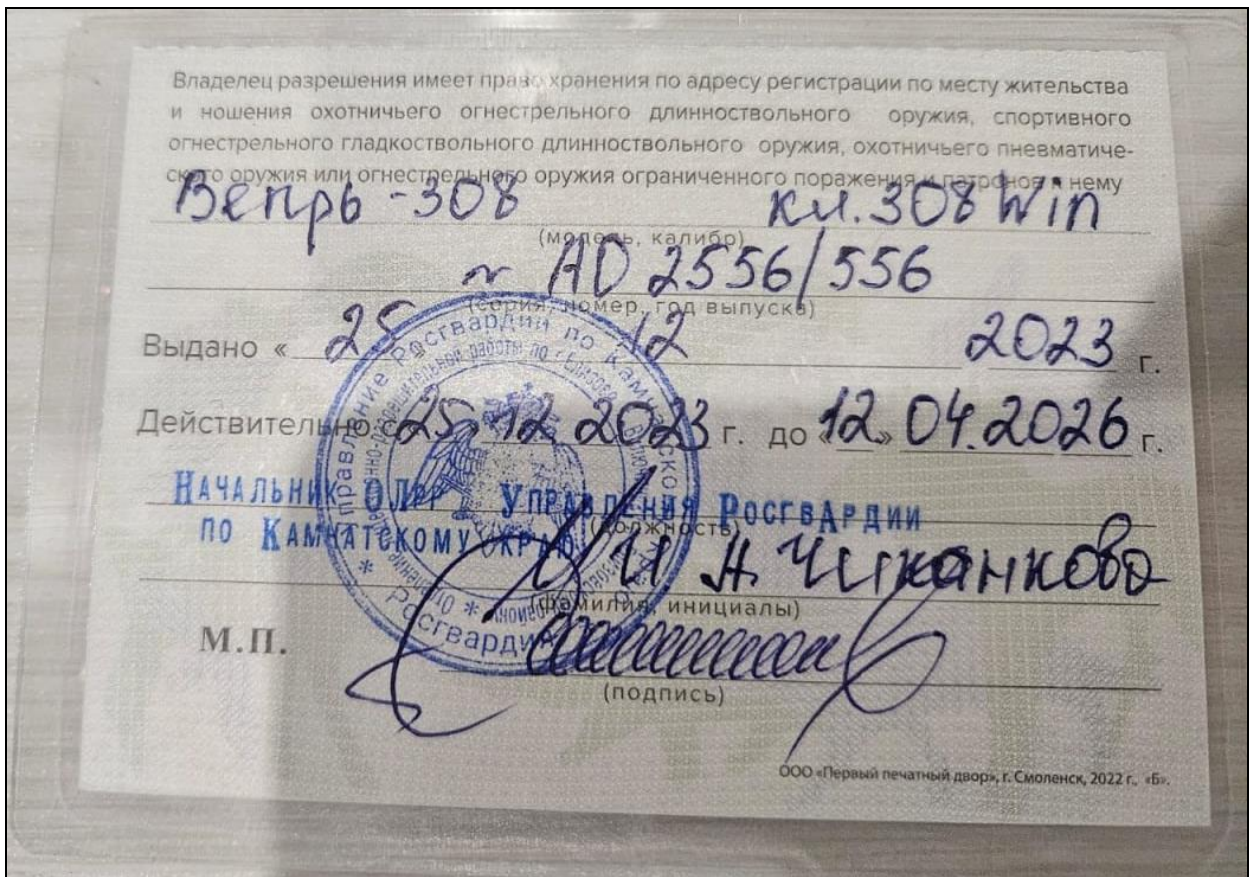 Владелец разрешения имеет право хранения по адресу регистрации по месту жительства
и ношения охотничьего огнестрельного длинноствольного оружия, спортивного
огнестрельного гладкоствольного длинноствольного оружия, охотничьего пневматиче-
ского оружия или огнестрельного оружия ограниченного поражения и патронов к нему
Вепрь-308 кл. 308 Win
(модель, калибр)
№ АО 2556/556
(серия, номер, год выпуска)
Выдано « 25 12 2023 г.
Действительно с «25» 12 2023 г. до «12» 04.2026 г.
Начальник ОЛРР Управления Росгвардии
(должность)
по Камчатскому краю И.А. Чижанкова
(фамилия, инициалы)
М.П.
(подпись)
ООО «Первый печатный двор», г. Смоленск, 2022 г., «Б».
Управление Росгвардии по Камчатскому краю * Росгвардия *